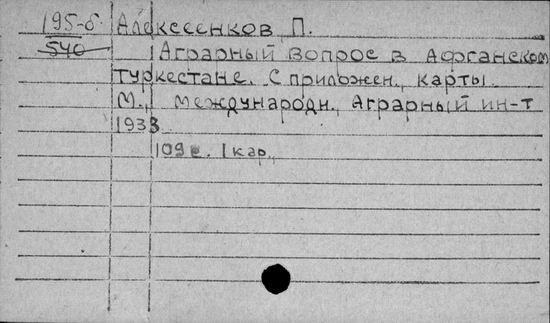 195-б Алексеенков П.
540 Аграрный вопрос в Афганском
Туркестане. С приложен., карты.
М., Международн., Аграрный ин-т
1933
109 с. 1 кар.,